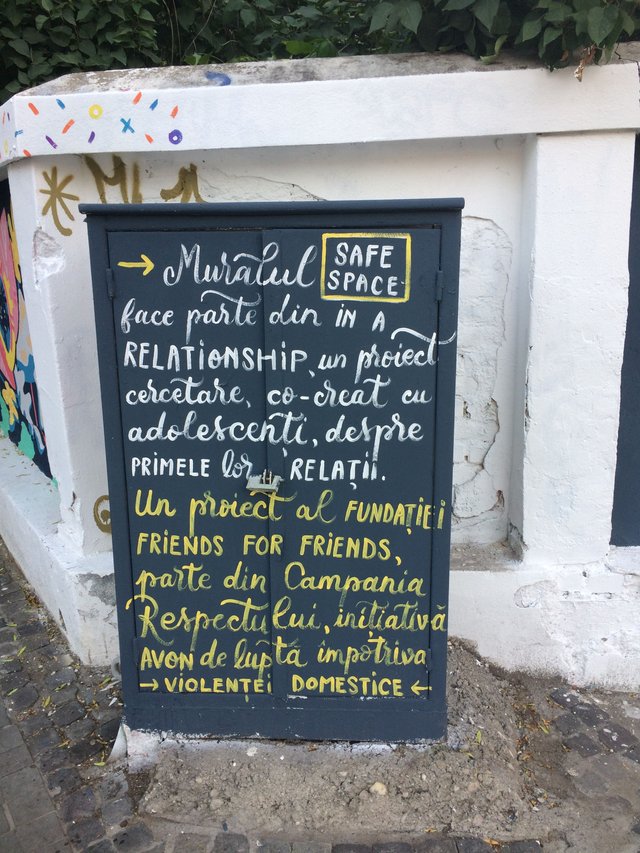 → Muralul SAFE SPACE
face parte din IN A
RELATIONSHIP, un proiect
cercetare, co-creat cu
adolescenți, despre
PRIMELE lor RELAȚII.
Un proiect al FUNDAȚIEI
FRIENDS FOR FRIENDS,
parte din Campania
Respectului, inițiativă
AVON de luptă împotriva
→ VIOLENȚEI DOMESTICE ←